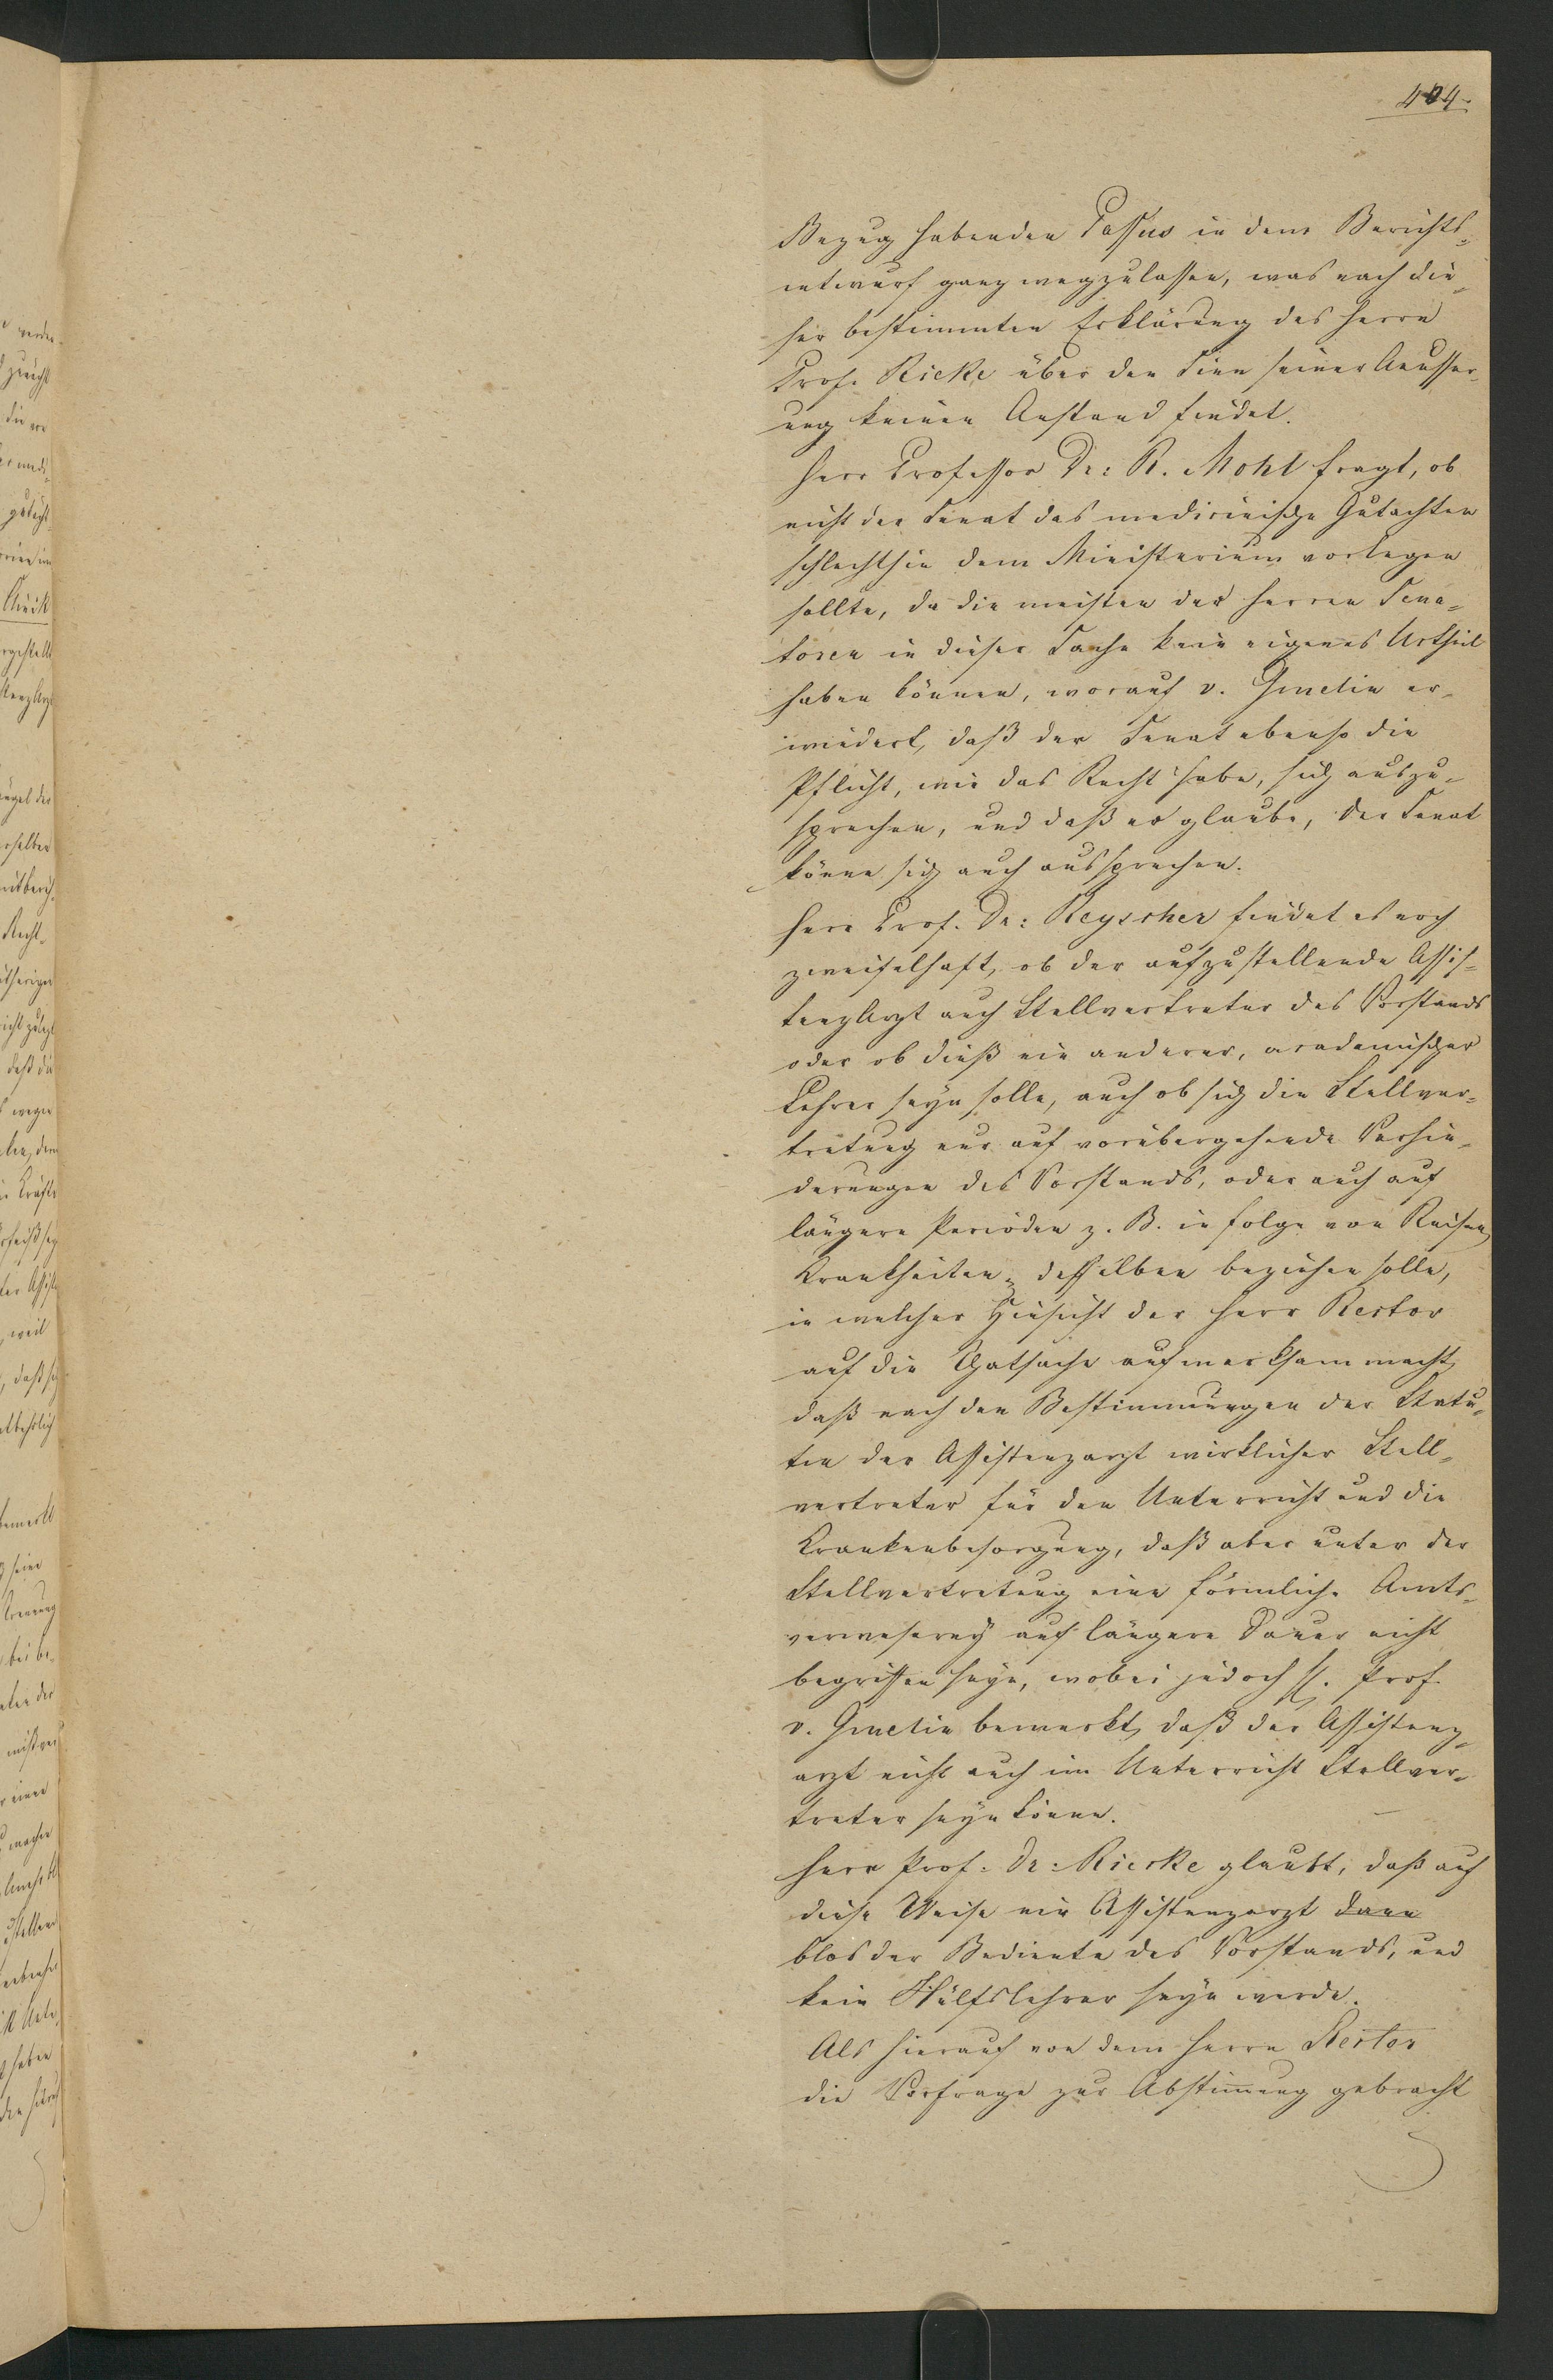 404.
Bezug habenden Passus in dem Berichts-
entwurf ganz wegzulassen, was nach die-
ser bestimmten Erklärung des Herrn
Prof. Riecke über den Sinn seiner Aeusser-
ung keinen Anstand findet.
Herr Professor Dr: R. Mohl fragt, ob
nicht der Senat das medicinische Gutachten
schlechthin dem Ministerium vorlegen
sollte, da die meisten der Herren Sena-
toren in dieser Sache kein eigenes Urtheil
haben können, worauf v. Gmelin er-
wiedert, daß der Senat ebenso die
Pflicht, wie das Recht habe, sich auszu-
sprechen, und daß er glaube, der Senat
könne sich auch aussprechen.
Herr Prof. Dr: Reyscher findet es noch
zweifelhaft, ob der aufzustellende Assis-
tenzArzt auch Stellvertreter des Vorstands
oder ob dieß ein anderer, academischer
Lehrer seyn solle, auch ob sich die Stellver-
tretung nur auf vorübergehende Verhin-
derungen des Vorstands, oder auch auf
längere Perioden z. B. in Folge von Reisen,
Krankheiten desselben beziehen solle,
in welcher Hinsicht der Herr Rector
auf die Thatsache aufmerksam macht,
daß nach den Bestimmungen der Statu-
ten der Assistenzarzt wirklicher Stell-
vertreter für den Unterricht und die
Krankenbesorgung, daß aber unter der
Stellvertretung eine förmliche Amts-
verweserey auf längere Dauer nicht
begriffen seye, wobei jedoch H. Prof.
v. Gmelin bemerkt, daß der Assistenz-
arzt nicht auch im Unterricht Stellver-
treter seyn könne.
Herr Prof. Dr: Riecke glaubt, daß auf
diese Weise ein Assistenzarzt dann
blos der Bediente des Vorstands, und
kein Hülfslehrer seyn werde.
Als hierauf von dem Herrn Rector
die Vorfrage zur Abstimmung gebracht